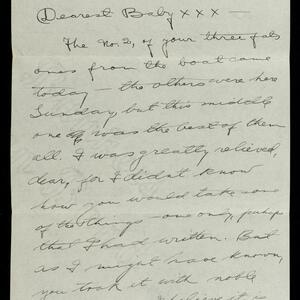 Dearest Baby x x x —
The No. 2, of your three fat
ones from the boat came
today — the others were here
Sunday, but this middle
one was the best of them
all. I was greatly relieved,
dear, for I didn't know
how you would take some
of the things — one only, perhaps
that I had written. But
as I might have known,
you took it with noble
believe it is